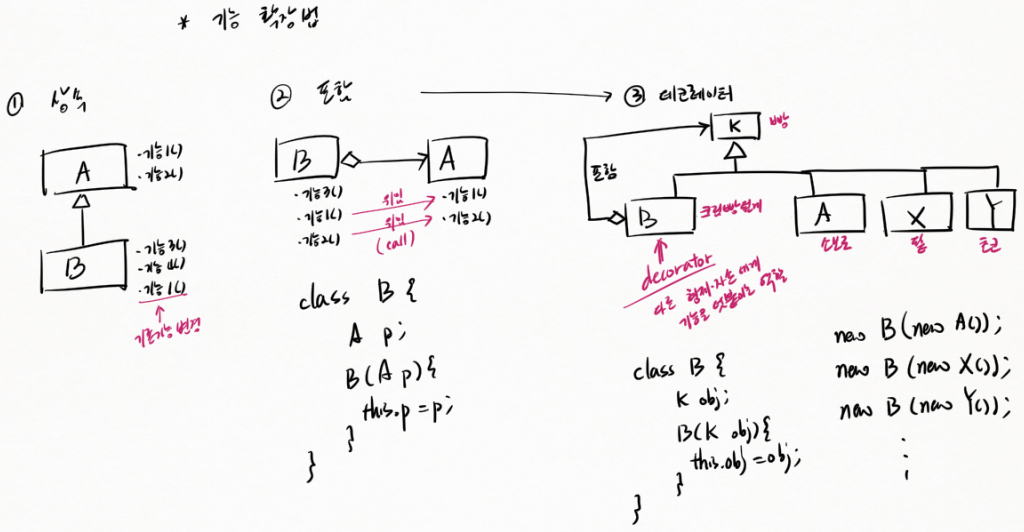 * 기능 확장법
① 상속
A
·기능1()
·기능2()
B
·기능3()
·기능4()
·기능1()
기존기능 변경
② 포함
B
A
·기능3()
·기능1()
·기능2()
위임
위임
(call)
·기능1()
·기능2()
class B {
A p;
B(A p){
this.p = p;
}
}
③ 데코레이터
K
빵
포함
B
크림빵
A
소보로
X
팥
Y
초코
decorator
다른 형제·자손에게
기능을 덧붙이는 역할
class B {
K obj;
B(K obj){
this.obj = obj;
}
}
new B(new A());
new B(new X());
new B(new Y());
⋮